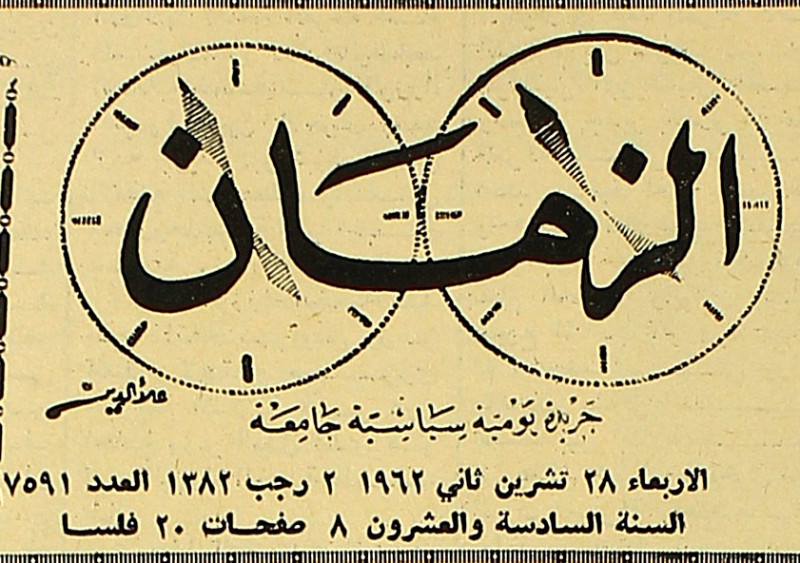 الزمان
علاء الدين
جَريدة يَوميّة سِيَاسِيّة جَامِعَة
الاربعاء ٢٨ تشرين ثاني ١٩٦٢ ٢ رجب ١٣٨٢ العدد ٧٥٩١
السنة السادسة والعشرون ٨ صفحات ٢٠ فلسا